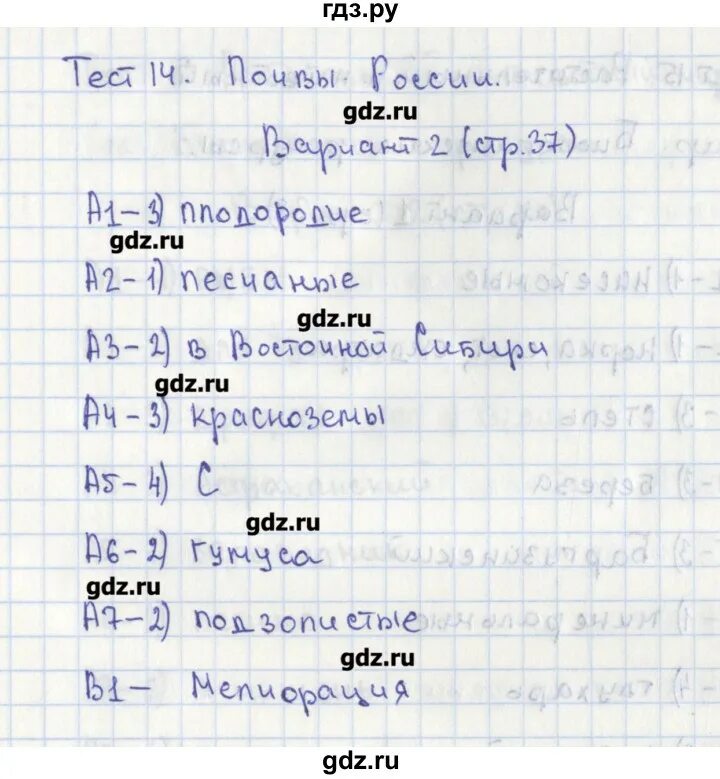 гдз.ру
Тест 14. Почвы России.
gdz.ru
Вариант 2 (стр.37)
А1-3) плодородие
gdz.ru
А2-1) песчаные
gdz.ru
А3-2) в Восточной Сибири
gdz.ru
А4-3) красноземы
А5-4) С
gdz.ru
А6-2) гумуса
gdz.ru
А7-2) подзолистые
gdz.ru
В1- Мелиорация
gdz.ru